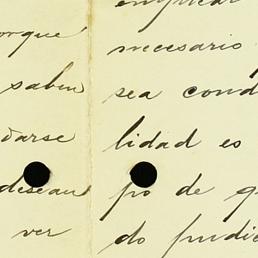 orque
saben
darse
desean
ver
emplear
necesario
sea cond
lidad es
po de q
do pudie